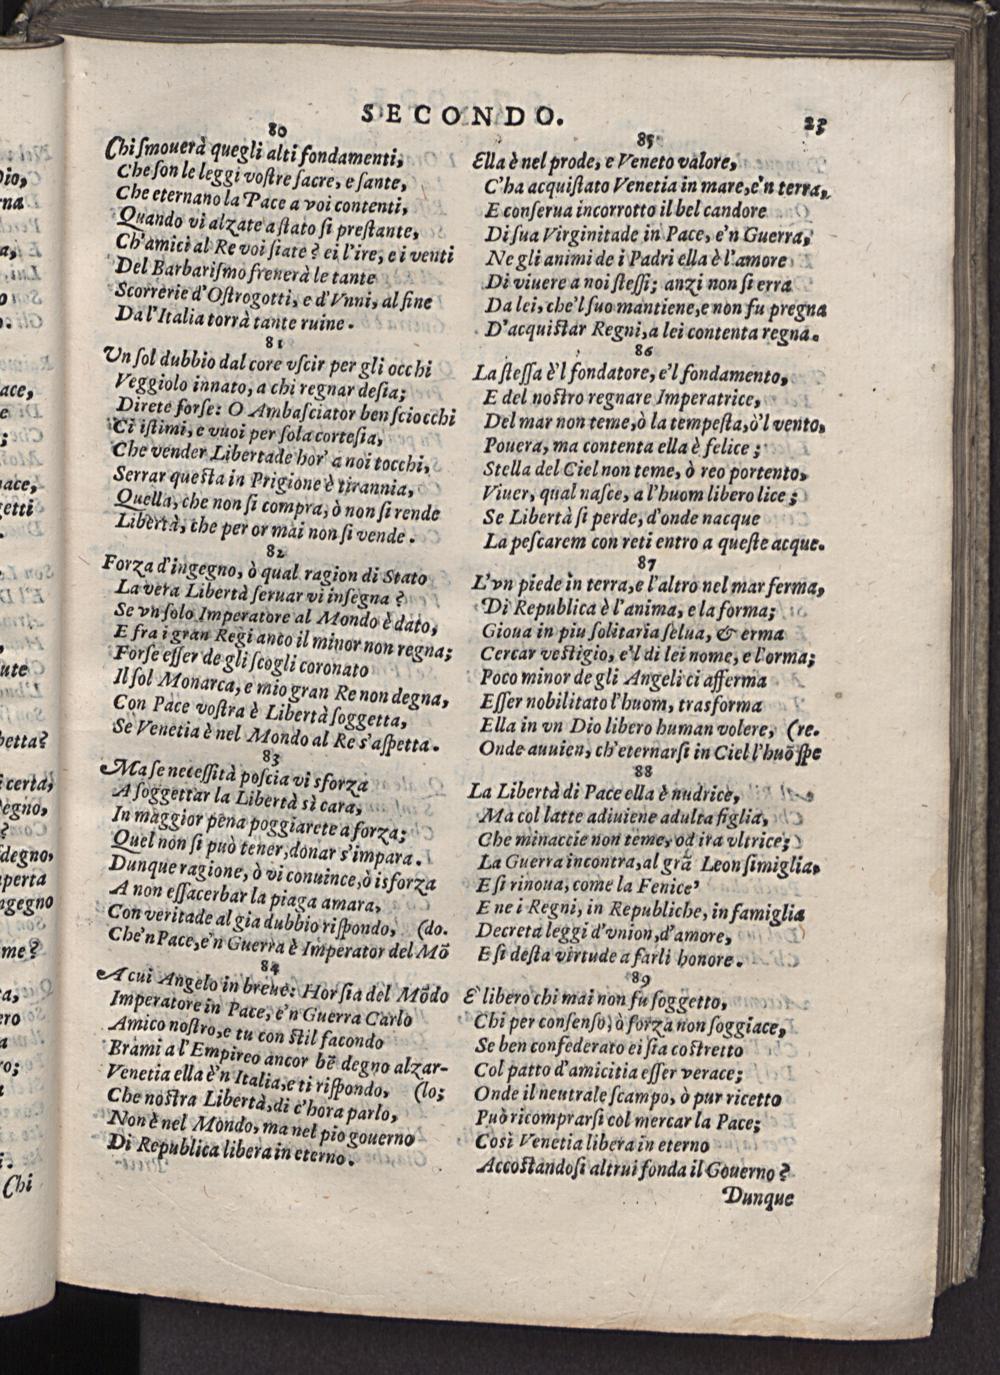 SECONDO. 23
80
Chi smouerà quegli alti fondamenti,
Che son le leggi vostre sacre, e sante,
Che eternano la Pace a voi contenti,
Quando vi alzate a stato sì prestante,
Ch'amici al Re voi siate? ei l'ire, e i venti
Del Barbarismo frenerà le tante
Scorrerie d'Ostrogotti, e d'Vnni, al fine
Da l'Italia torrà tante ruine.
81
Vn sol dubbio dal core vscir per gli occhi
Veggiolo innato, a chi regnar desia;
Direte forse: O Ambasciator ben sciocchi
Ci istimi, e vuoi per sola cortesia,
Che vender Libertade hor' a noi tocchi,
Serrar questa in Prigione è tirannia,
Quella, che non si compra, ò non si rende
Libertà, che per or mai non si vende.
82
Forza d'ingegno, ò qual ragion di Stato
La vera Libertà seruar vi insegna?
Se vn solo Imperatore al Mondo è dato,
E fra i gran Regi anco il minor non regna;
Forse esser de gli scogli coronato
Il sol Monarca, e mio gran Re non degna,
Con Pace vostra è Libertà soggetta,
Se Venetia è nel Mondo al Re s'aspetta.
83
Ma se necessità poscia vi sforza
A soggettar la Libertà sì cara,
In maggior pena poggiarete a forza;
Quel non si può tener, donar s'impara.
Dunque ragione, ò vi conuince, ò isforza
A non essacerbar la piaga amara,
Con veritade al gia dubbio rispondo, (do.
Che'n Pace, e'n Guerra è Imperator del Mõ
84
A cui Angelo in breue: Hor sia del Mõdo
Imperatore in Pace, e'n Guerra Carlo
Amico nostro, e tu con stil facondo
Brami a l'Empireo ancor bẽ degno alzar-
Venetia ella è'n Italia, e ti rispondo, (lo;
Che nostra Libertà, di c'hora parlo,
Non è nel Mondo, ma nel pio gouerno
Di Republica libera in eterno.
85
Ella è nel prode, e Veneto valore,
C'ha acquistato Venetia in mare, e'n terra,
E conserua incorrotto il bel candore
Di sua Virginitade in Pace, e'n Guerra,
Ne gli animi de i Padri ella è l'amore
Di viuere a noi stessi; anzi non si erra
Da lei, che'l suo mantiene, e non fu pregna
D'acquistar Regni, a lei contenta regna.
86
La stessa è'l fondatore, e'l fondamento,
E del nostro regnare Imperatrice,
Del mar non teme, ò la tempesta, ò'l vento,
Pouera, ma contenta ella è felice;
Stella del Ciel non teme, ò reo portento,
Viuer, qual nasce, a l'huom libero lice;
Se Libertà si perde, d'onde nacque
La pescarem con reti entro a queste acque.
87
L'vn piede in terra, e l'altro nel mar ferma,
Di Republica è l'anima, e la forma;
Gioua in piu solitaria selua, & erma
Cercar vestigio, e'l di lei nome, e l'orma;
Poco minor de gli Angeli ci afferma
Esser nobilitato l'huom, trasforma
Ella in vn Dio libero human volere, (re.
Onde auuien, ch'eternarsi in Ciel l'huõ spe
88
La Libertà di Pace ella è nudrice,
Ma col latte adiuiene adulta figlia,
Che minaccie non teme, od ira vltrice;
La Guerra incontra, al grã Leon simiglia,
E si rinoua, come la Fenice
E ne i Regni, in Republiche, in famiglia
Decreta leggi d'vnion, d'amore,
E si desta virtude a farli honore.
89
E' libero chi mai non fu soggetto,
Chi per consenso, ò forza non soggiace,
Se ben confederato ei sia costretto
Col patto d'amicitia esser verace;
Onde il neutrale scampo, ò pur ricetto
Può ricomprarsi col mercar la Pace;
Così Venetia libera in eterno
Accostandosi altrui fonda il Gouerno?
Dunque